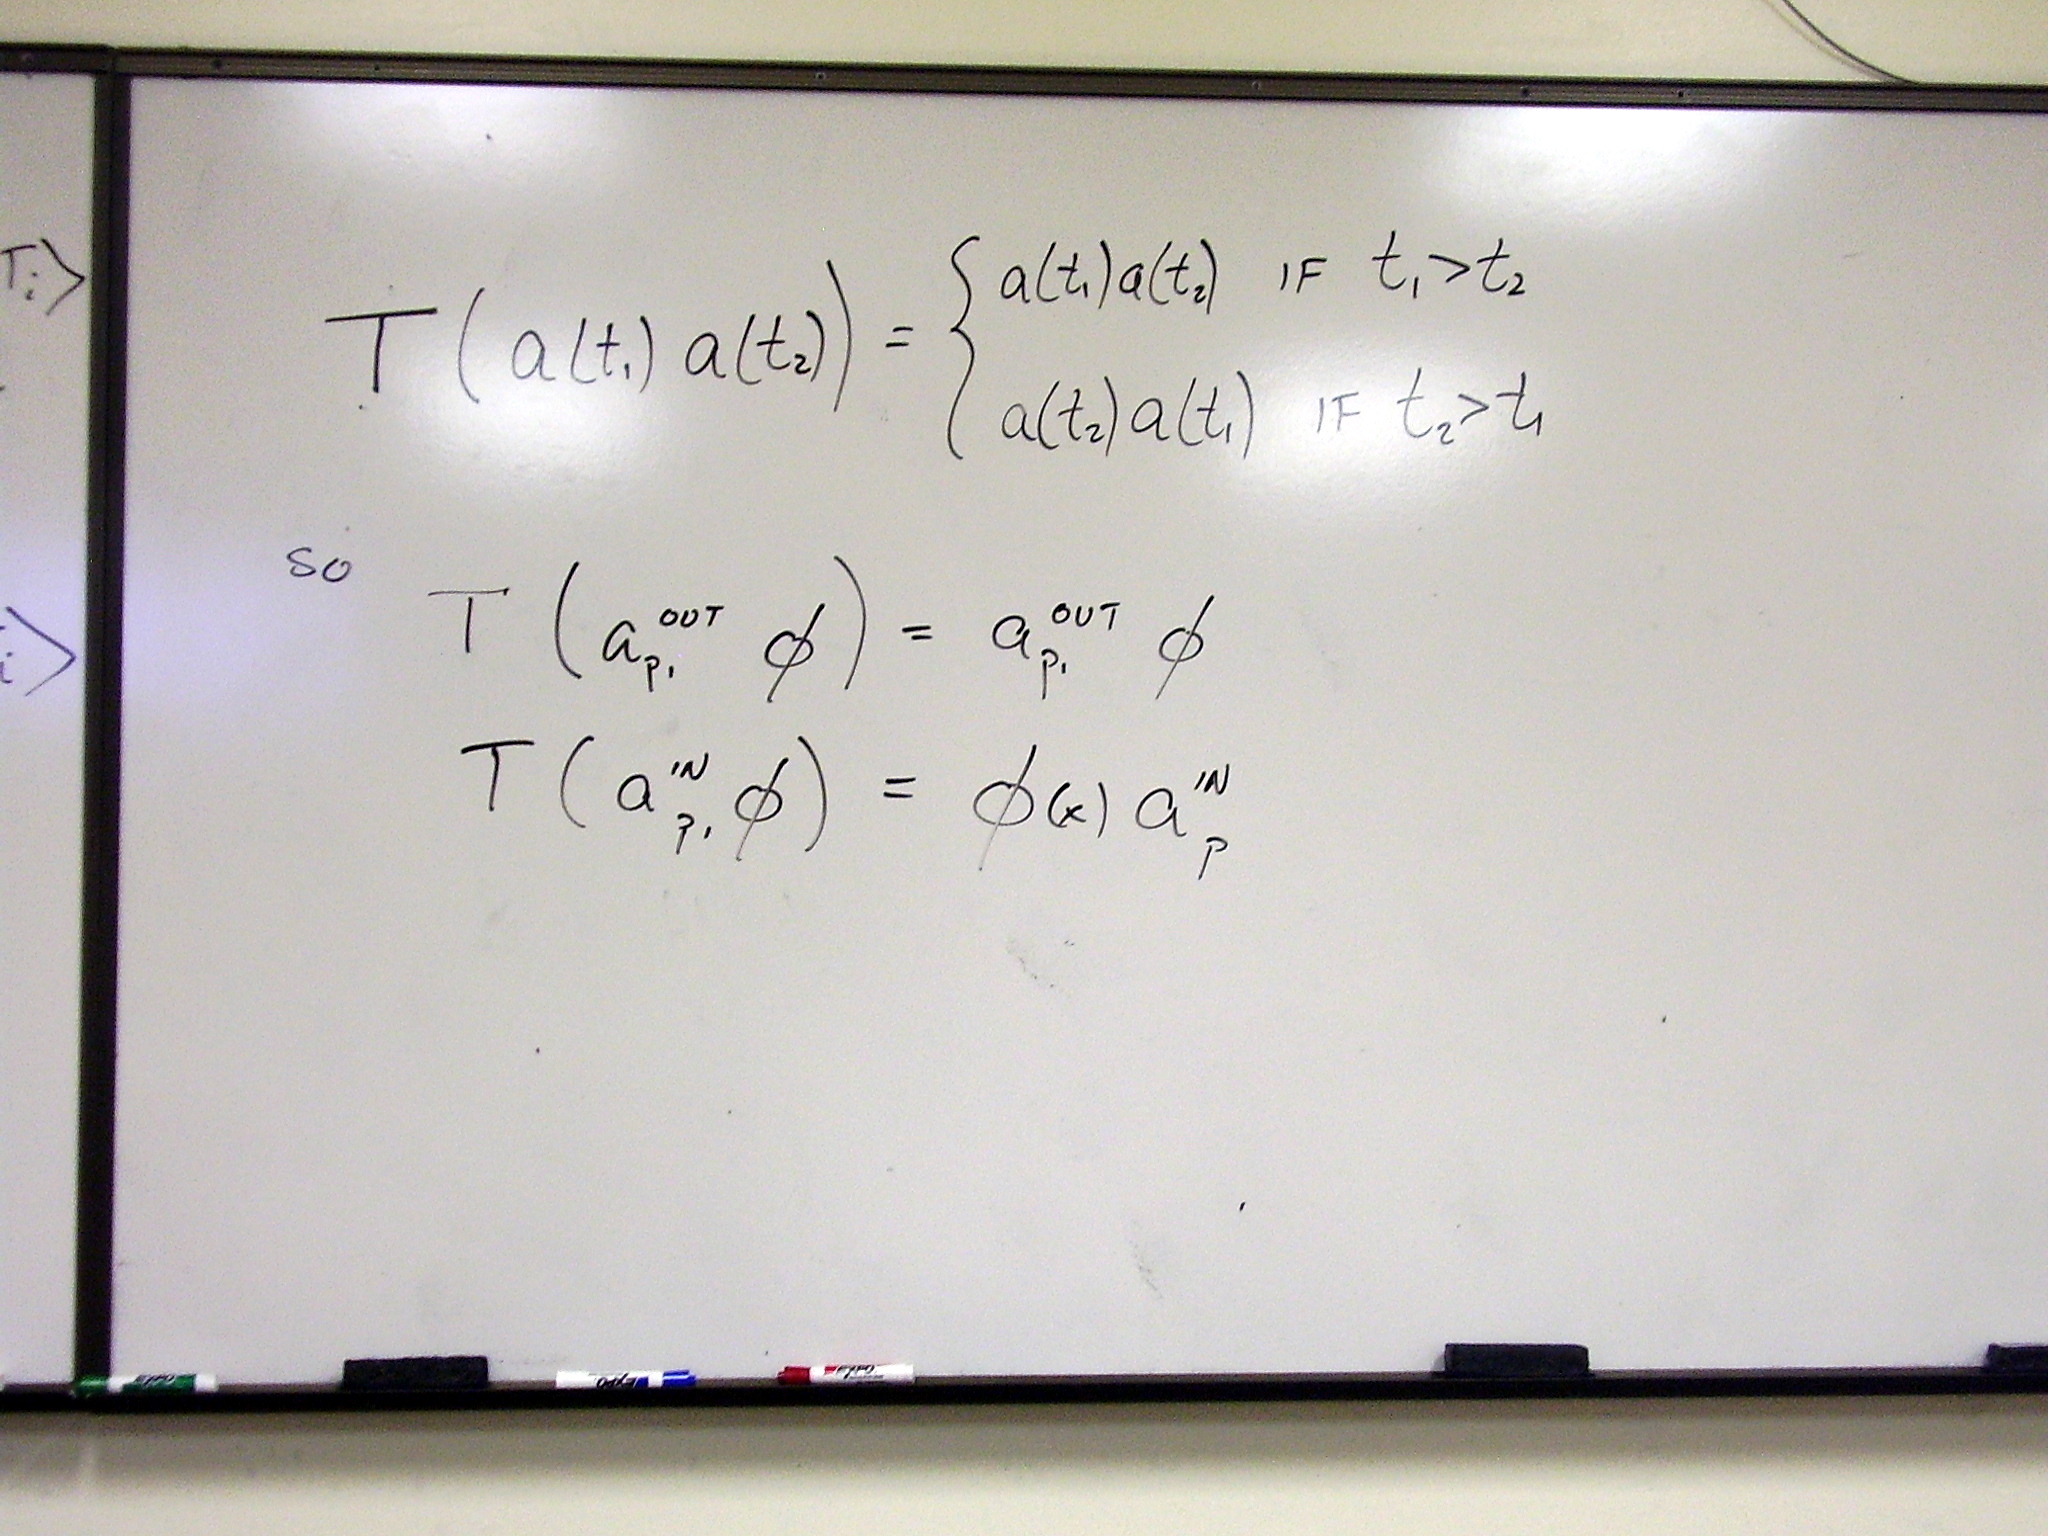 T_i⟩
i⟩
T(a(t₁) a(t₂)) = { a(t₁)a(t₂) IF t₁>t₂
a(t₂)a(t₁) IF t₂>t₁
so
T(a_{p₁}^{OUT} ϕ) = a_{p₁}^{OUT} ϕ
T(a_{p₁}^{IN} ϕ) = ϕ(x) a_{p}^{IN}
EXPO